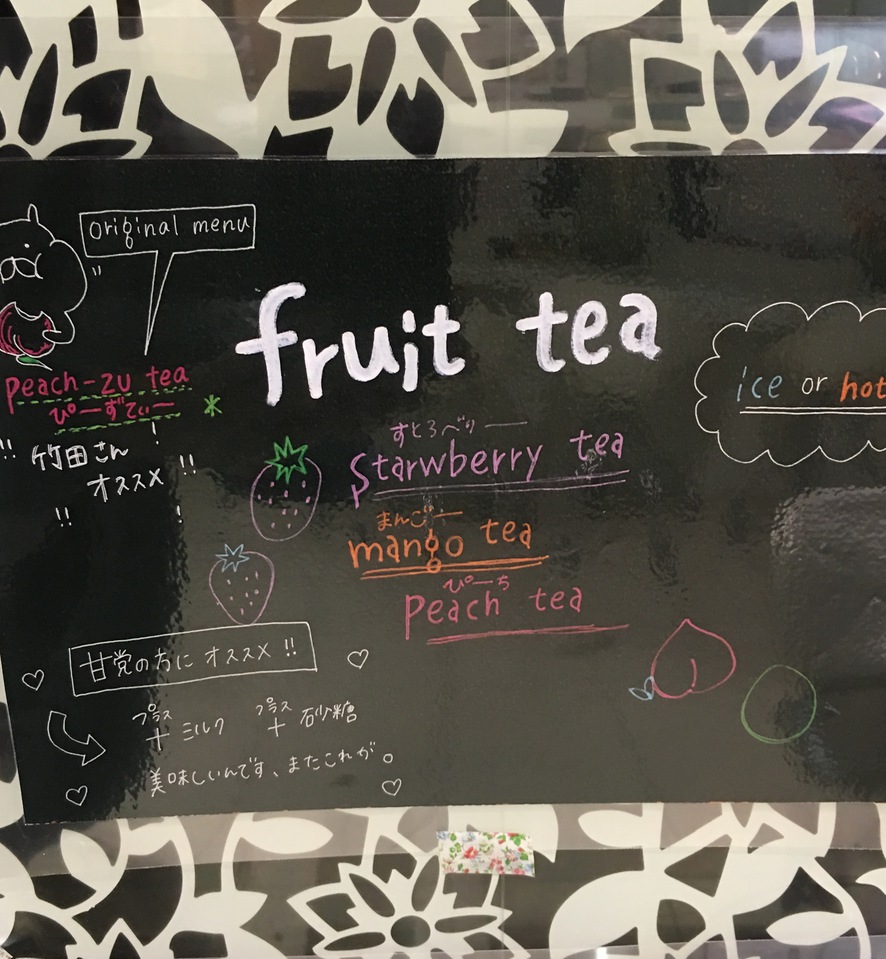 original menu
fruit tea
peach-zu tea
ぴーずてぃー
!! 竹田さん !
オススメ !!
!! !
ice or hot
すとろべりー
Starwberry tea
まんごー
mango tea
ぴーち
Peach tea
甘党の方に オススメ !!
プラス プラス
+ ミルク + 砂糖
美味しいんです、またこれが。